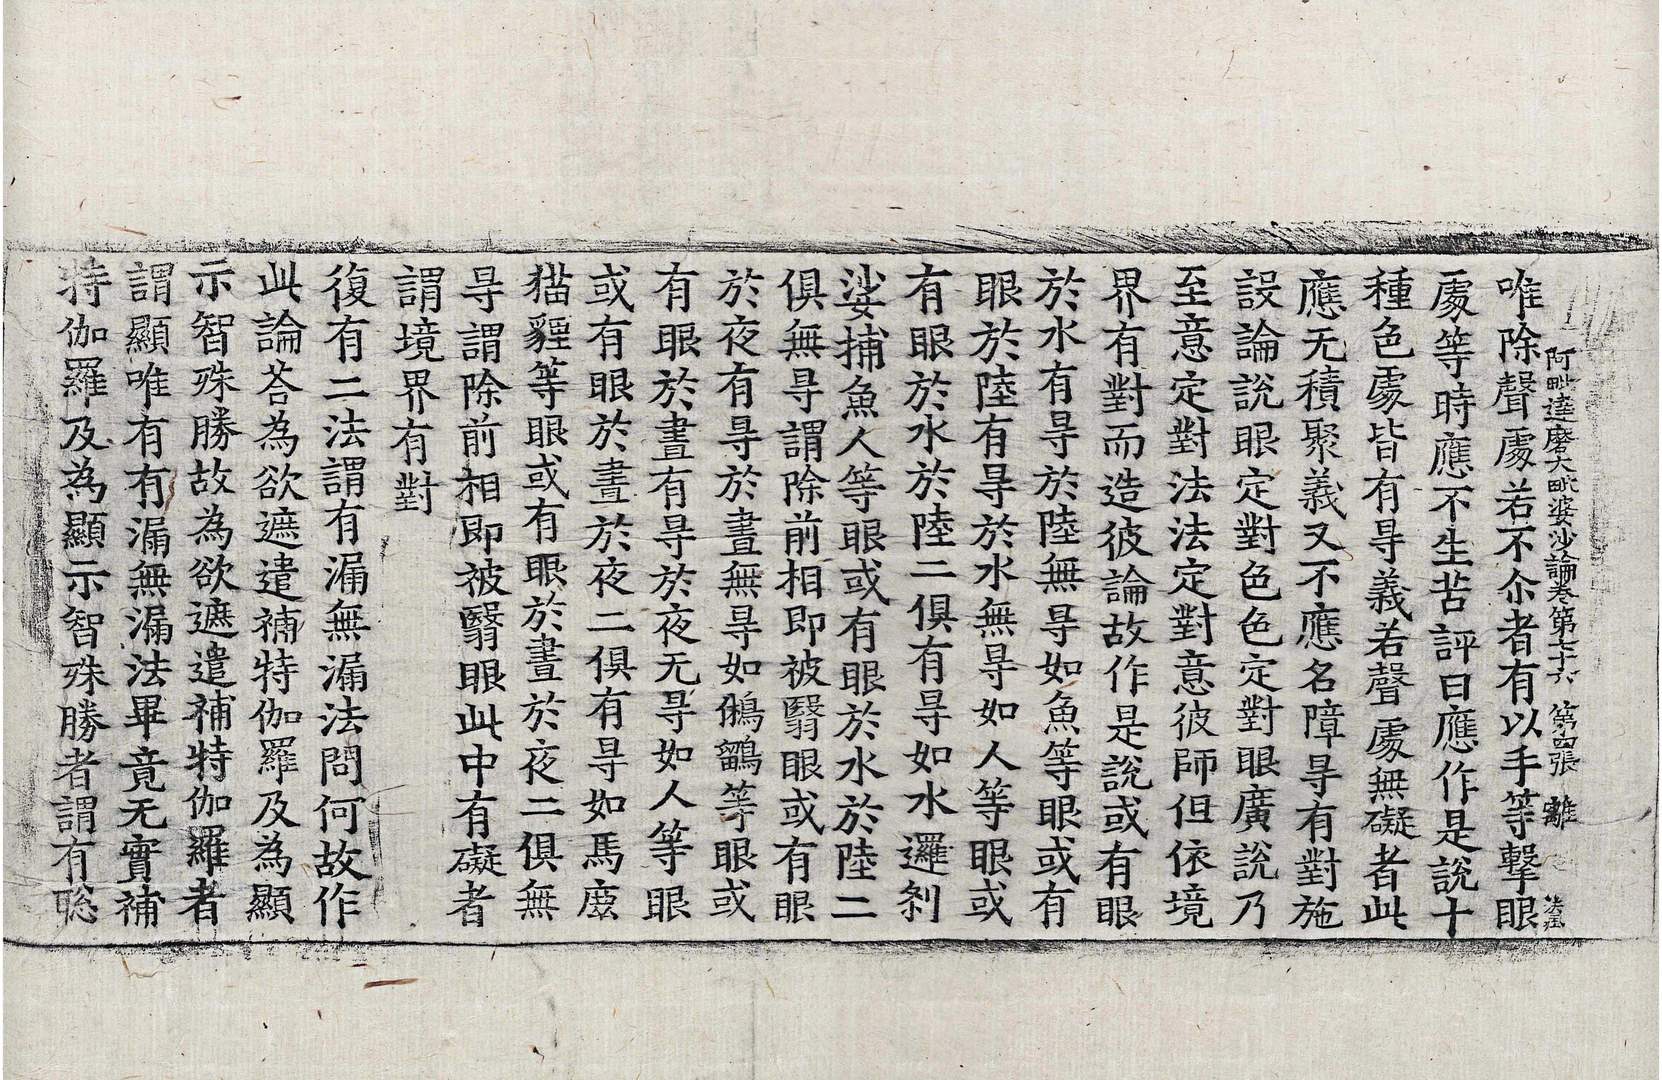 阿毗達磨大毗婆沙論卷第七十六 第四張 離
唯除聲處若不尒者有以手等擊眼
處等時應不生苦評曰應作是說十
種色處皆有㝵義若聲處無礙者此
應无積聚義又不應名障㝵有對施
設論說眼定對色色定對眼廣說乃
至意定對法法定對意彼師但依境
界有對而造彼論故作是說或有眼
於水有㝵於陸無㝵如魚等眼或有
眼於陸有㝵於水無㝵如人等眼或
有眼於水於陸二俱有㝵如水邏剎
娑捕魚人等眼或有眼於水於陸二
俱無㝵謂除前相即被翳眼或有眼
於夜有㝵於晝無㝵如鵂鶹等眼或
有眼於晝有㝵於夜无㝵如人等眼
或有眼於晝於夜二俱有㝵如馬鹿
猫貍等眼或有眼於晝於夜二俱無
㝵謂除前相即被翳眼此中有礙者
謂境界有對
復有二法謂有漏無漏法問何故作
此論荅為欲遮遣補特伽羅及為顯
示智殊勝故為欲遮遣補特伽羅者
謂顯唯有有漏無漏法畢竟无實補
特伽羅及為顯示智殊勝者謂有聡